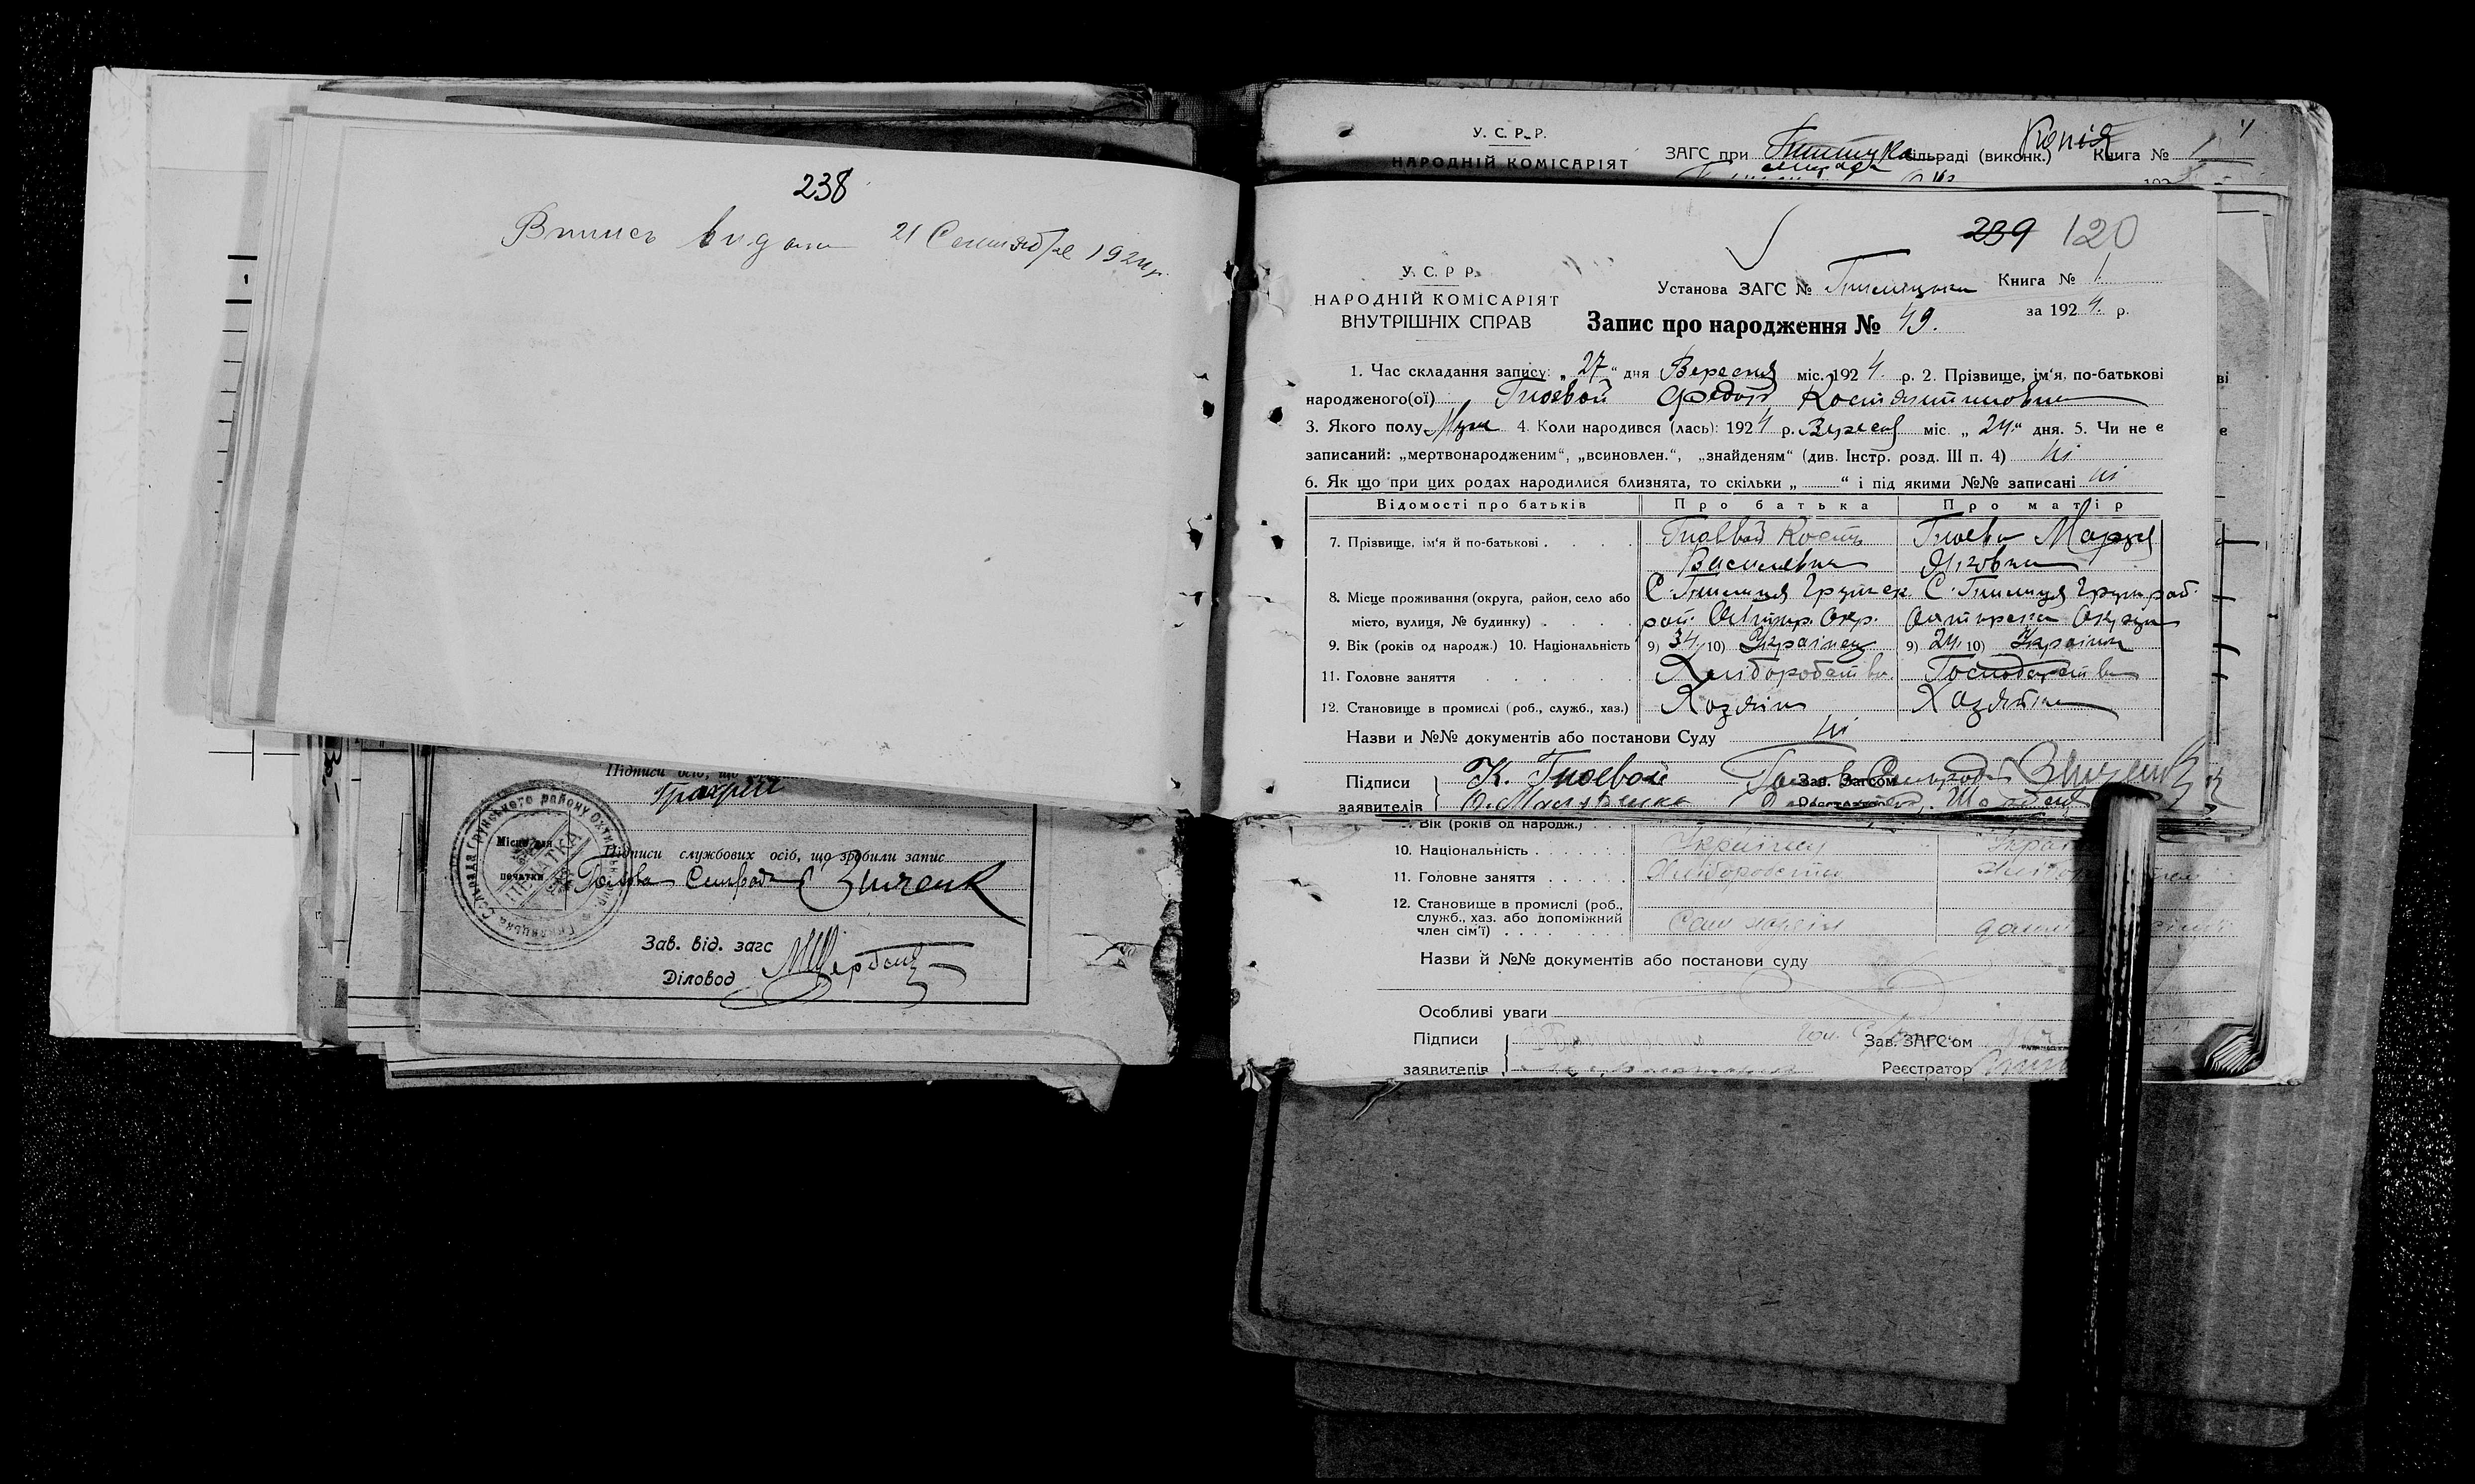 238
Выпись видана 21 Сентября 1924 г.
Підписи осіб, що
Місце для
печатки
ПЕЧАТКА
Підписи службових осіб, що зробили запис
Голова Сельради Зинченк
Зав. від. загс
Діловод МЩербань
У. С. Р. Р.
НАРОДНІЙ КОМІСАРІЯТ
ЗАГС при сільраді (виконк.) Копія Книга № 1
239 120
У. С. Р. Р.
НАРОДНІЙ КОМІСАРІЯТ
ВНУТРІШНІХ СПРАВ
Установа ЗАГС № Книга № 1
за 1924 р.
Запис про народження № 49.
1. Час складання запису: „27“ дня Вересня міс. 1924 р. 2. Прізвище, ім'я, по-батькові
народженого(ої) Гноевой Федор Костянтинович
3. Якого полу Муж 4. Коли народився (лась): 1924 р. Вересня міс. „24“ дня. 5. Чи не є
записаний: „мертвонародженим“, „всиновлен.“, „знайденям“ (див. Інстр. розд. III п. 4) ні
6. Як що при цих родах народилися близнята, то скільки „ “ і під якими №№ записані ні
Відомості про батьків Про батька Про матір
7. Прізвище, ім'я й по-батькові Гноевой Кость Гноева Мария
Василевич
8. Місце проживання (округа, район, село або С. Грунск С. Грун раб.
місто, вулиця, № будинку) рай. Охтир. Окр. Охтирска Округа
9. Вік (років од народж.) 10. Національність 9) 34 10) Украінец 9) 24 10) Украінка
11. Головне заняття Хліборобство Господарство
12. Становище в промислі (роб., служб., хаз.) Хозяїн Хазяйка
Назви и №№ документів або постанови Суду ні
Підписи К. Гноевой Зав. Загсом
заявителів
9. Вік (років од народж.)
10. Національність Украінец
11. Головне заняття Хліборобство
12. Становище в промислі (роб.,
служб., хаз. або допоміжний
член сім'ї) Сам хазяїн
Назви й №№ документів або постанови суду
Особливі уваги
Підписи Зав. ЗАГС'ом
заявителів Реєстратор